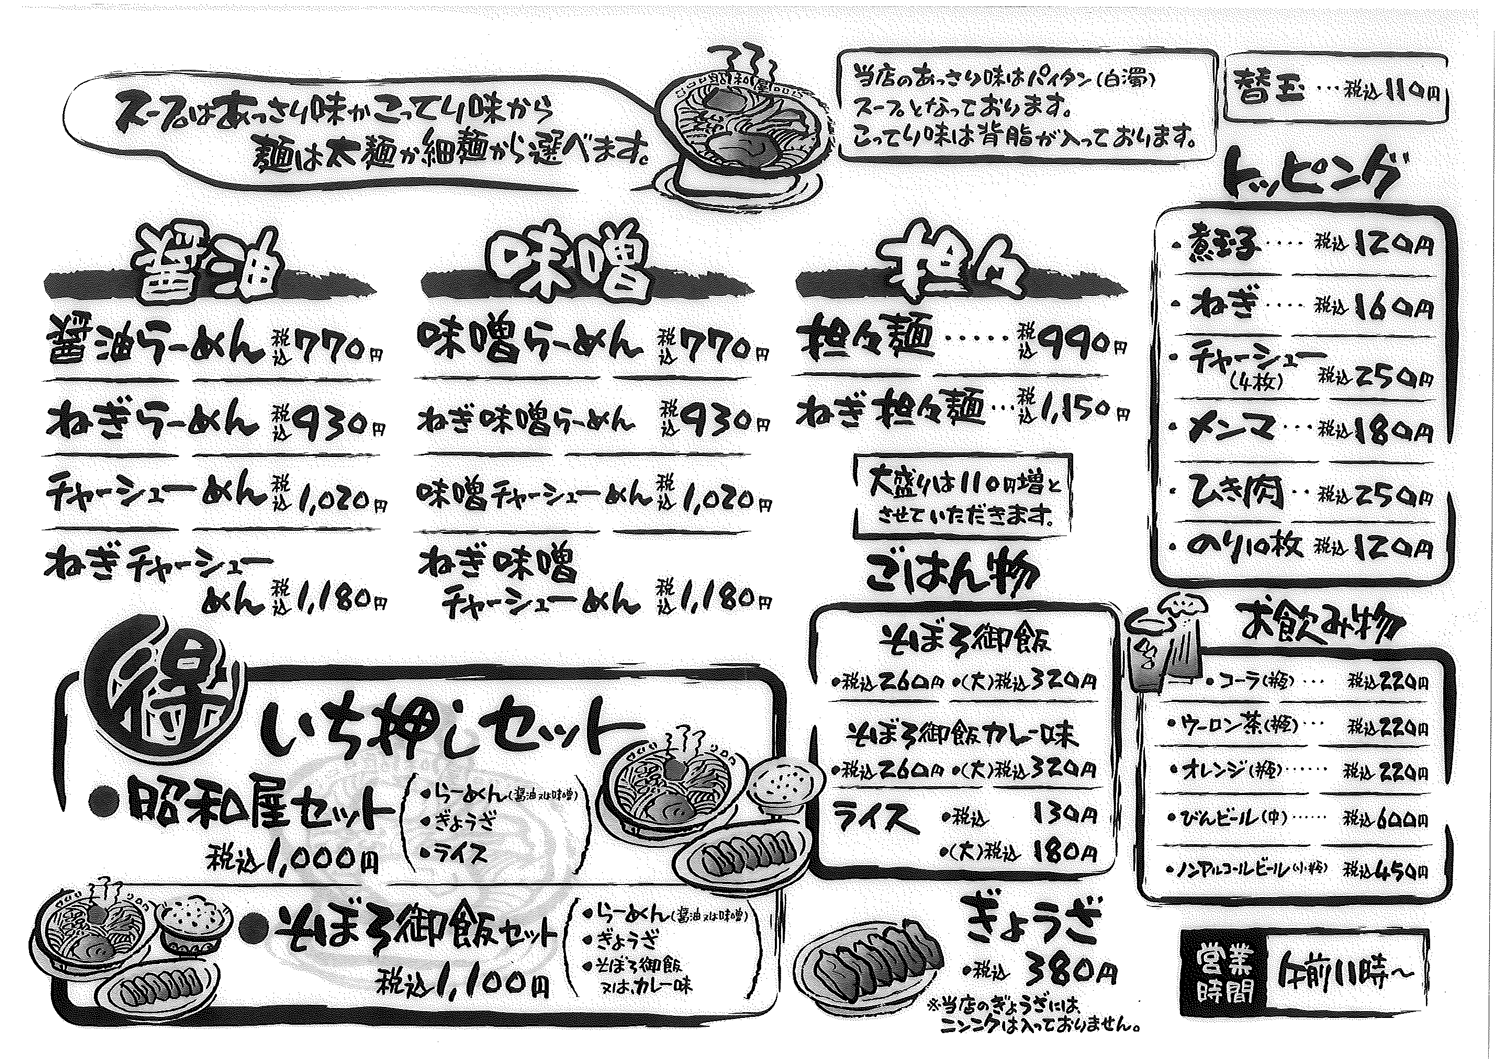 スープはあっさり味かこってり味から
麺は太麺か細麺から選べます。
当店のあっさり味はパイタン(白濁)
スープとなっております。
こってり味は背脂が入っております。
替玉…税込110円
醤油
醤油らーめん 税込770円
ねぎらーめん 税込930円
チャーシューめん 税込1,020円
ねぎチャーシュー
めん 税込1,180円
味噌
味噌らーめん 税込770円
ねぎ味噌らーめん 税込930円
味噌チャーシューめん 税込1,020円
ねぎ味噌
チャーシューめん 税込1,180円
担々
担々麺……税込990円
ねぎ担々麺…税込1,150円
大盛りは110円増と
させていただきます。
トッピング
・煮玉子····税込120円
・ねぎ····税込160円
・チャーシュー
(4枚) 税込250円
・メンマ···税込180円
・ひき肉··税込250円
・のり10枚 税込120円
ごはん物
そぼろ御飯
・税込260円 ・(大)税込320円
そぼろ御飯カレー味
・税込260円 ・(大)税込320円
ライス ・税込 130円
・(大)税込 180円
お飲み物
・コーラ(瓶)… 税込220円
・ウーロン茶(瓶)… 税込220円
・オレンジ(瓶)…… 税込220円
・びんビール(中)…… 税込600円
・ノンアルコールビール(小瓶) 税込450円
得
いち押しセット
●昭和屋セット
税込1,000円
・らーめん(醤油又は味噌)
・ぎょうざ
・ライス
●そぼろ御飯セット
税込1,100円
・らーめん(醤油又は味噌)
・ぎょうざ
・そぼろ御飯
又は、カレー味
ぎょうざ
・税込 380円
※当店のぎょうざには、
ニンニクは入っておりません。
営業
時間
午前11時〜
昭和屋